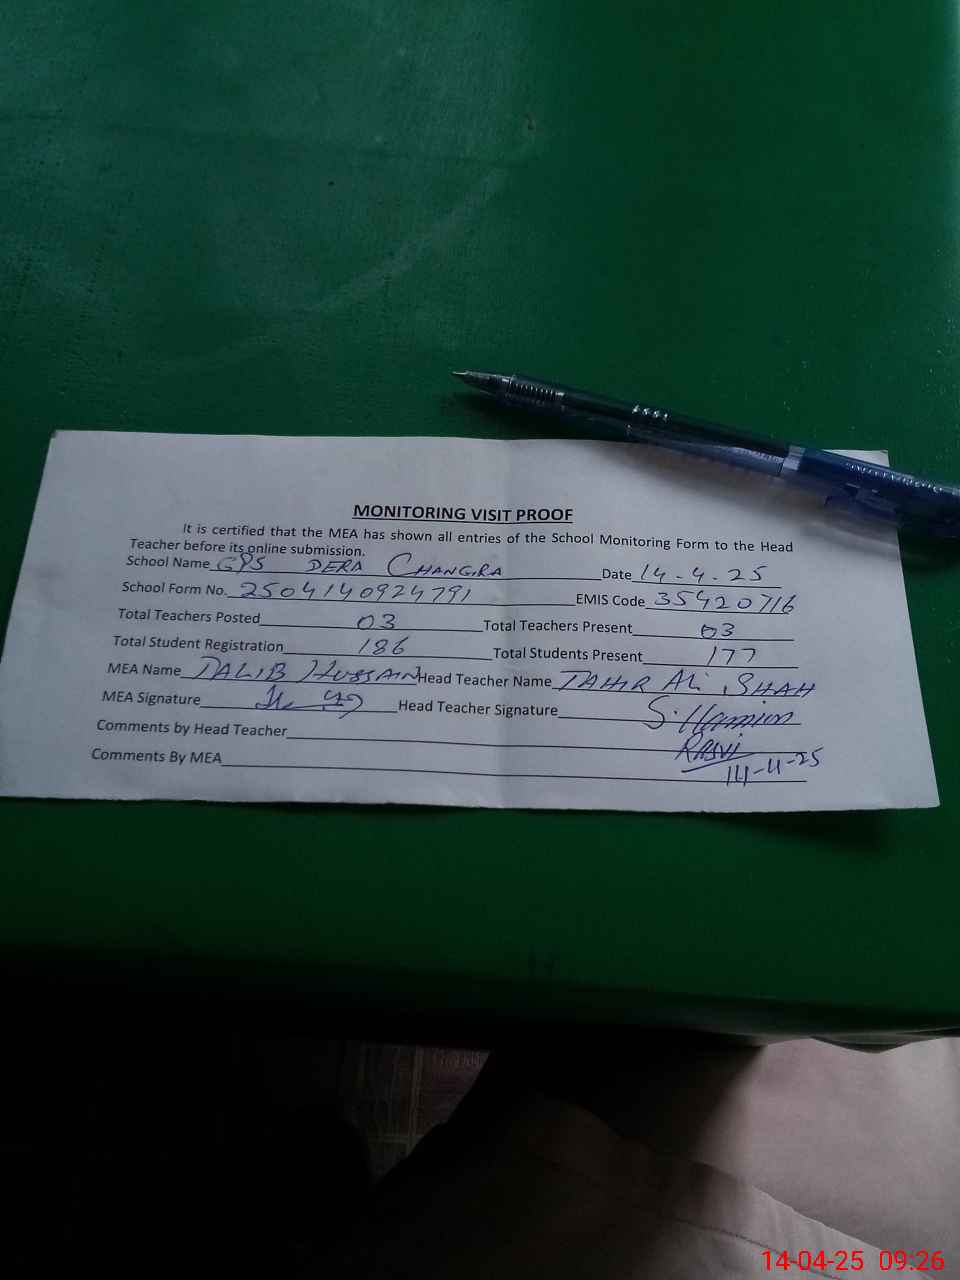 MONITORING VISIT PROOF
It is certified that the MEA has shown all entries of the School Monitoring Form to the Head
Teacher before its online submission.
School Name GPS DERA CHANGIRA Date 14-4-25
School Form No. 2504140924791 EMIS Code 35420716
Total Teachers Posted 03 Total Teachers Present 03
Total Student Registration 186 Total Students Present 177
MEA Name TALIB HUSSAIN Head Teacher Name TAHIR Ali SHAH
MEA Signature Head Teacher Signature
Comments by Head Teacher
Comments By MEA
14-04-25 09:26